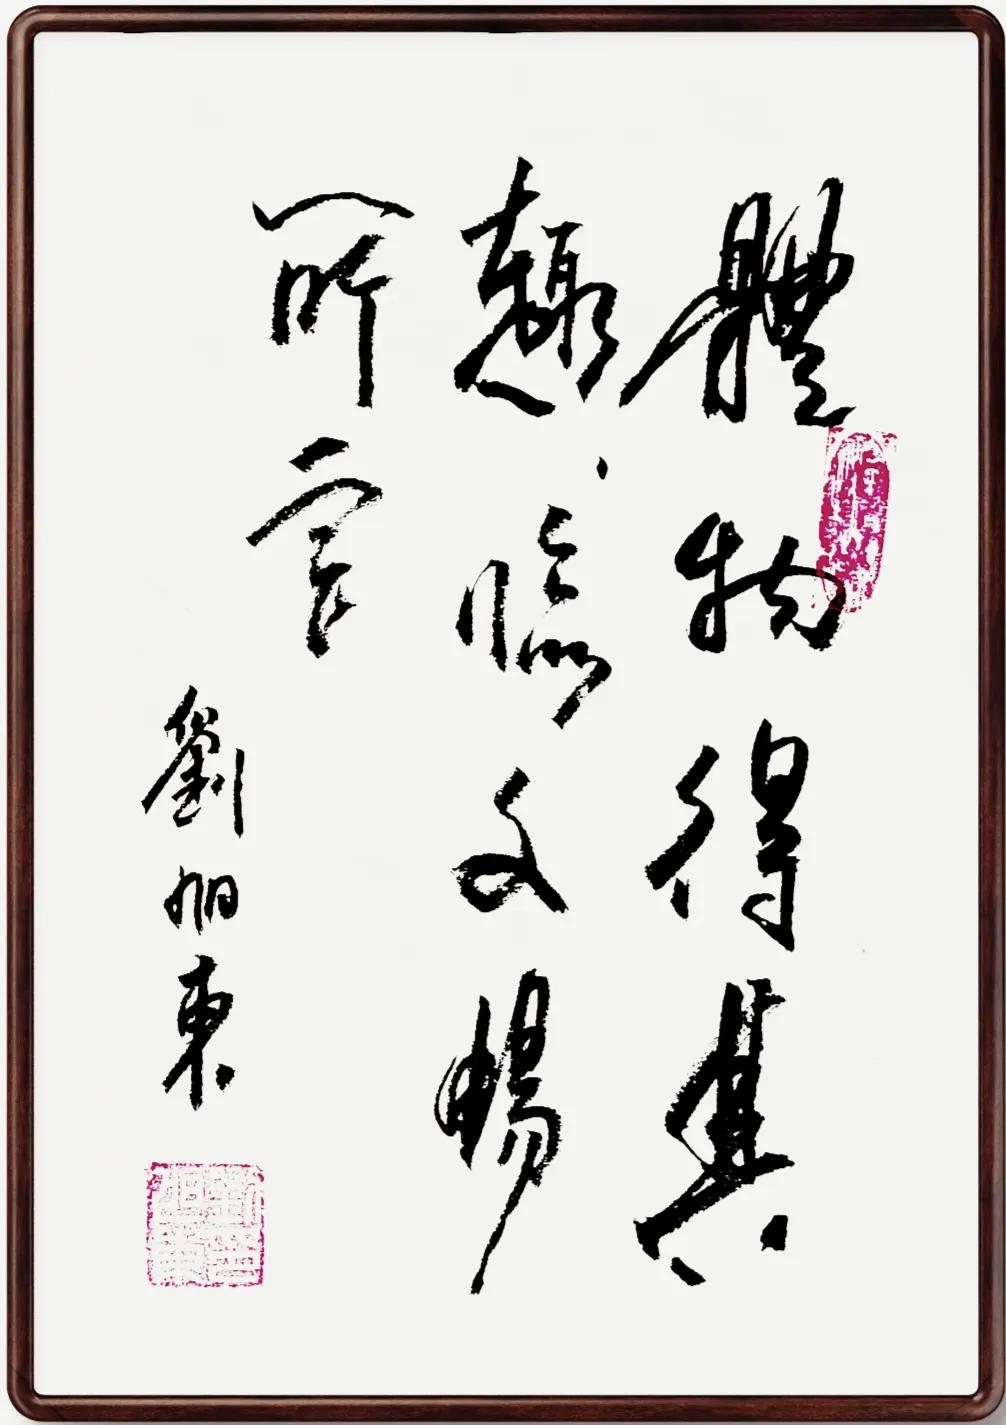 體物得真
趣臨文暢
所言
劉旭東